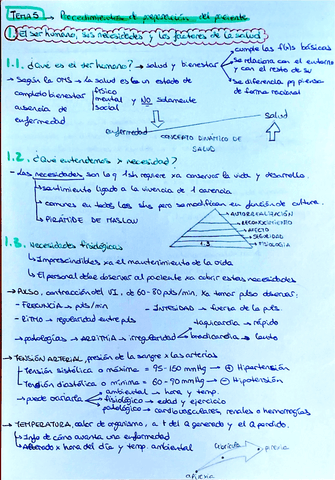 TEMA 5 → Procedimientos de preparación del paciente
1. El ser humano, sus necesidades y los factores de la salud
1.1. ¿Qué es el ser humano? → salud y bienestar
cumple las f(x)s básicas
Se relaciona con el entorno
y con el resto de su
Se diferencia pq piensa
de forma racional
→ Según la OMS → la salud es un estado de
completo bienestar
físico
mental
social
y NO solamente
ausencia de
enfermedad
enfermedad
Salud
CONCEPTO DINÁMICO DE
SALUD
1.2. ¿Qué entendemos x necesidad?
- Las necesidades son lo q 1sh requiere xa conservar la vida y desarrollo.
sentimiento ligado a la vivencia de 1 carencia
comunes en todos los shs pero se modifican en función de cultura.
PIRÁMIDE DE MASLOW
AUTORREALIZACIÓN
RECONOCIMIENTO
AFECTO
SEGURIDAD
FISIOLOGÍA
1.3
1.3. Necesidades fisiológicas
Imprescindibles xa el mantenimiento de la vida
El personal debe observar al paciente xa cubrir estas necesidades
→ PULSO, contracción del VI, de 60-80 puls/min. Xa tomar pulso observar:
- FRECUENCIA → puls/min
- INTENSIDAD → fuerza de la puls.
- RITMO → regularidad entre puls
→ patologías → ARRITMIA → irregularidad
taquicardia → rápido
bradicardia → lento
→ TENSIÓN ARTERIAL, presión de la sangre x las arterias
Tensión sistólica o máxima = 95-150 mmHg → ⊕ Hipertensión
Tensión diastólica o mínima = 60-90 mmHg → ⊖ Hipotensión
puede variarla
ambiental → hora y temp.
fisiológico → edad y ejercicio
patológico → cardiovasculares, renales o hemorragias
→ TEMPERATURA, calor de organismo, a t del Q generado y el Q perdido.
Info de cómo avanza una enfermedad
Alterado x hora del día y temp. ambiental